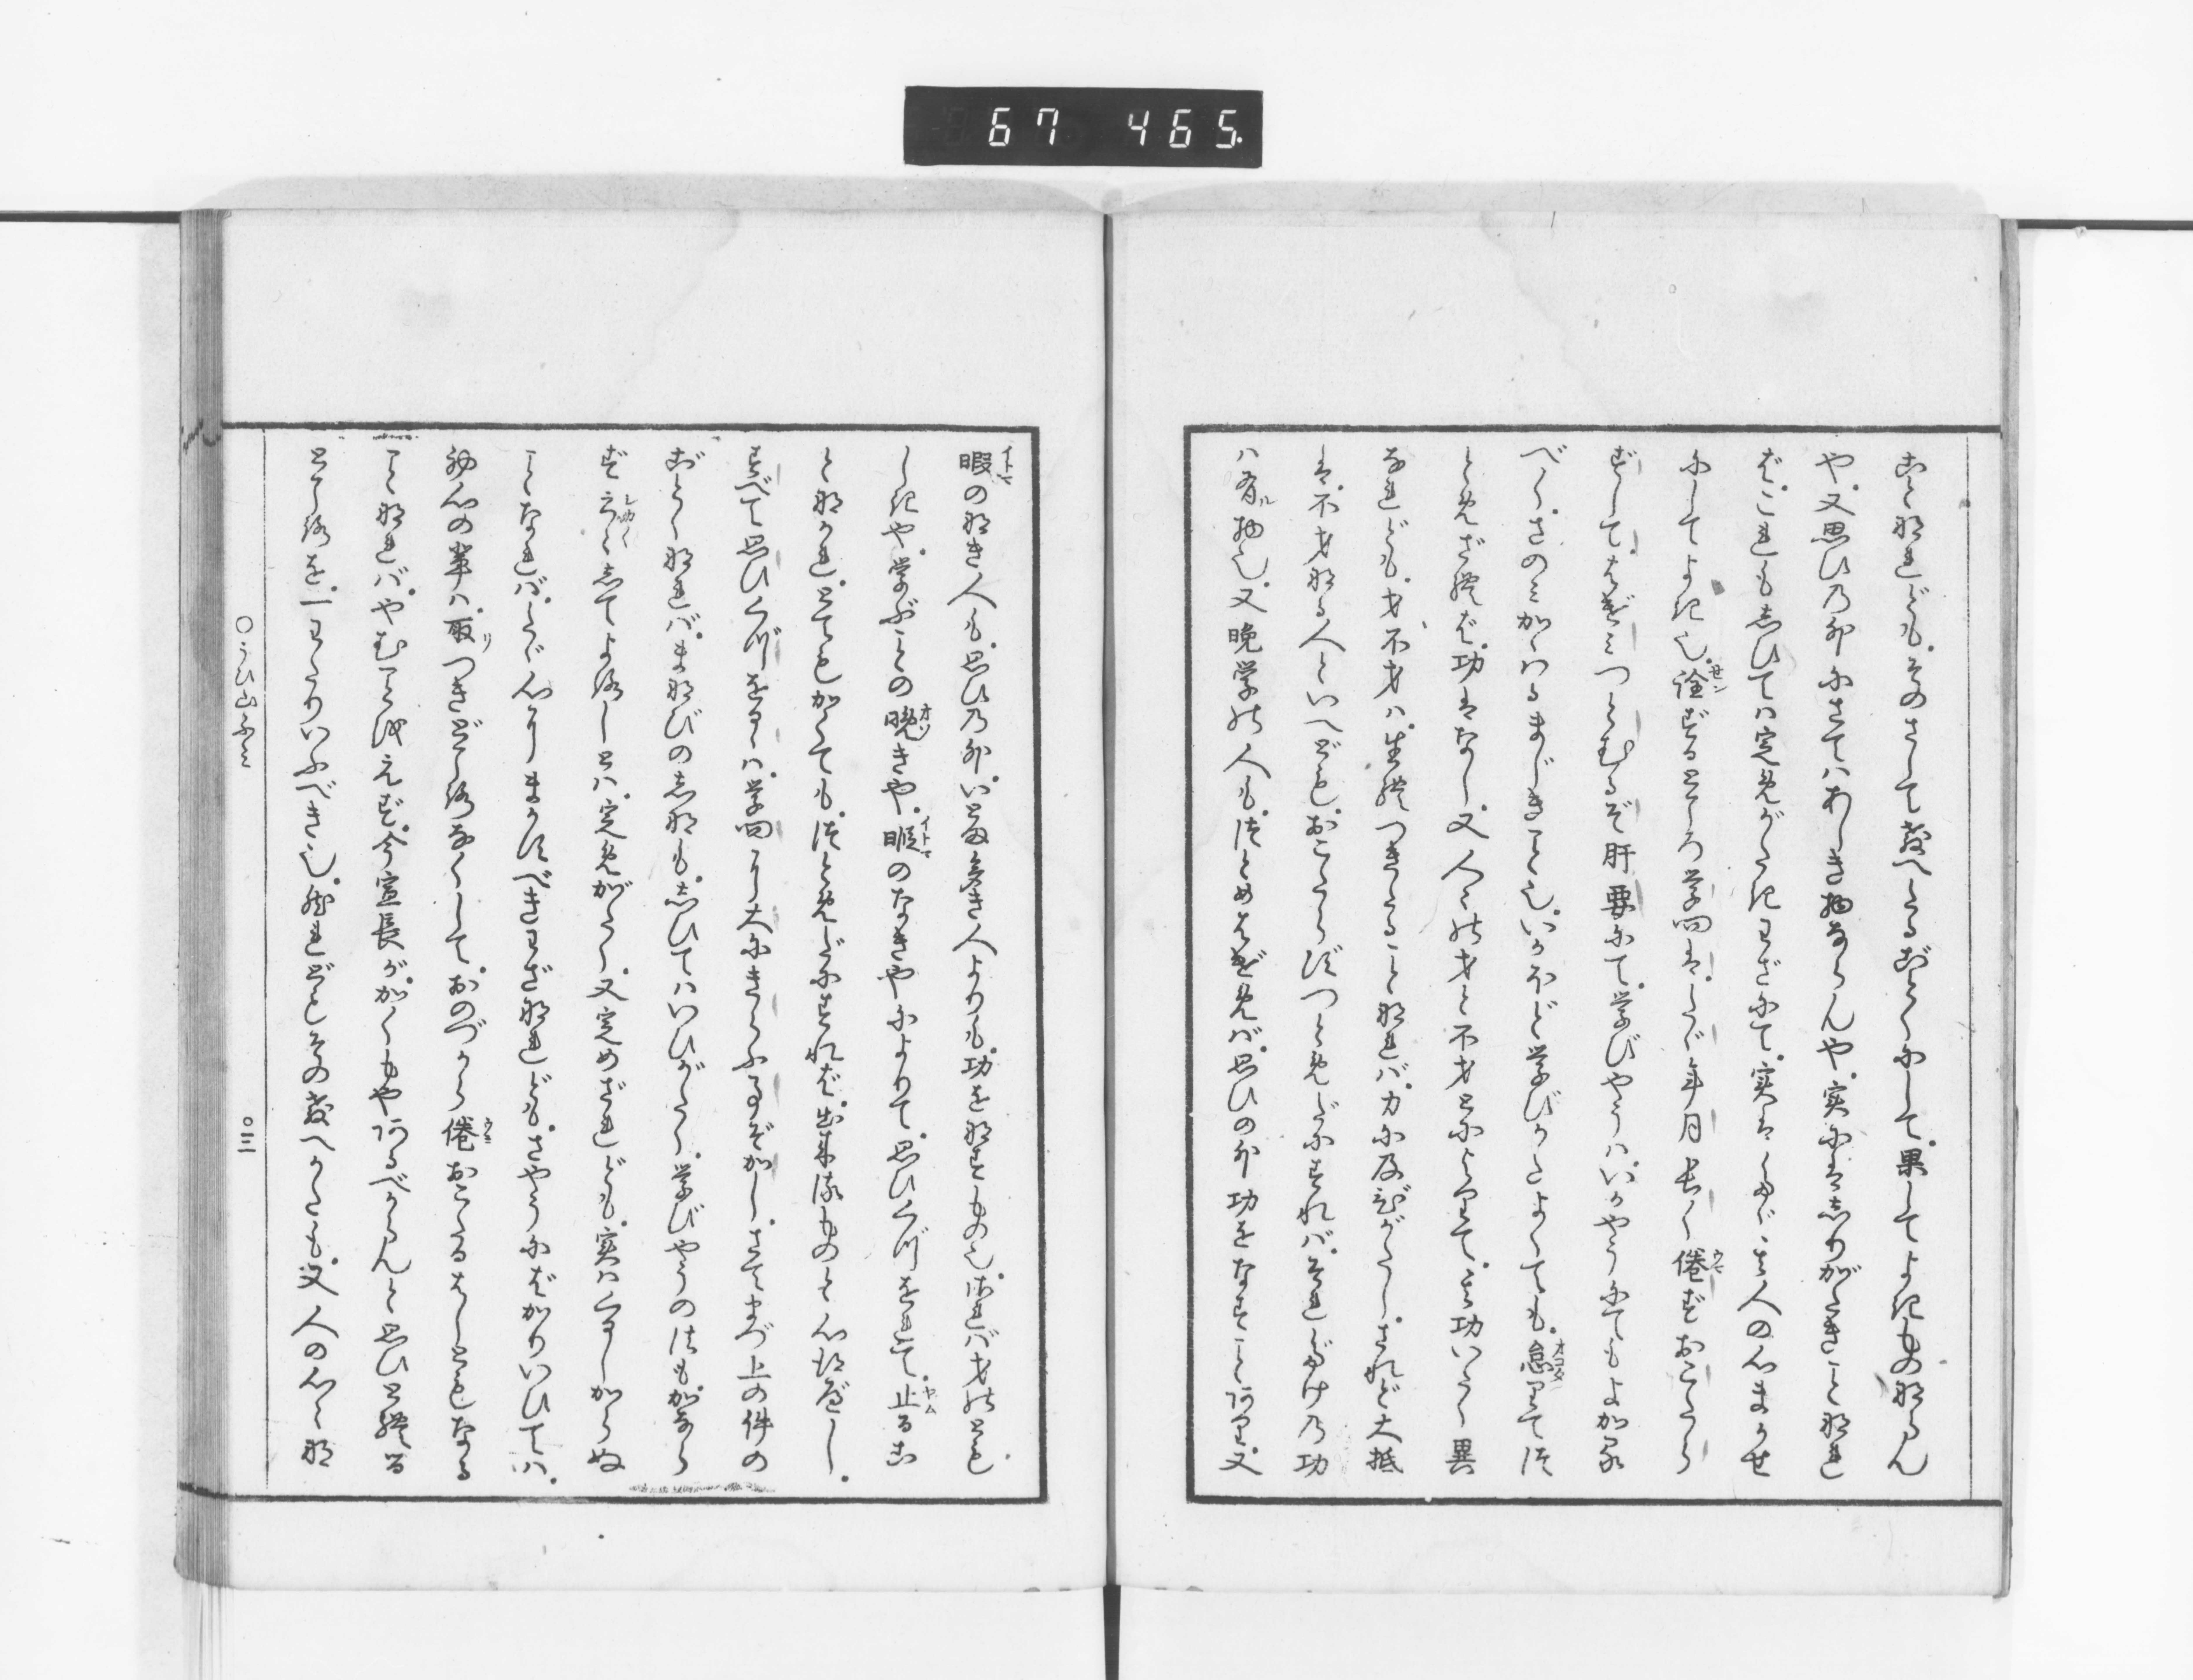 67 465
こと也れども、そのさして教へたるごとくにして、果してよきもの也らん
や、又思ひの外にさてはあしき物ならんや、実にはしりがたきこと也れ
ば、これもしひては定めがたきわざにて、実はたゞ其人の心まかせ
にしてよき也、詮ずるところ学問は、たゞ年月長く倦ずおこたら
ずして、はげみつとむるぞ肝要にて、学びやうは、いかやうにてもよかる
べく、さのみかゝはるまじきこと也、いかほど学びかたよくても、怠りてつ
とめざれば、功はなし、又人々の才と不才とによりて、其功いたく異
なれども、才不才は、生れつきたることなれば、力に及びがたし、されど大抵
は、不才なる人といへども、おこたらずつとめだにすれば、それだけの功
は有ル物也、又晩学の人も、つとめはげめば、思ひの外功をなすことあり、又
暇のなき人も、思ひの外、いとま多き人よりも、功をなすもの也、されば才のとも
しきや、学ぶことの晩きや、暇のなきやによりて、思ひくづをれて、止ることなかれ
とてもかくても、つとめだにすれば、出来るものと心得べし、
すべて思ひくづをるゝは、学問に大にきらふ事ぞかし、さてまづ上の件の
ごとくなれば、まなびのしなも、しひてはいひがたく、学びやうの法も、かなら
ずしか〳〵してよろしとは、定めがたく、又定めざれども、実はくるしからぬ
ことなれば、たゞ心にまかすべきわざなれども、さやうにばかりいひては、
初心の輩は、取リつきどころなくして、おのづから倦おこたるはしともなる
ことなれば、やむことをえず、今宣長が、かくもやあるべからんと思ひとれる
ところを、一わたりいふべき也、然れどもその教へかたも、又人の心〳〵な
○うひ山ふミ
○三